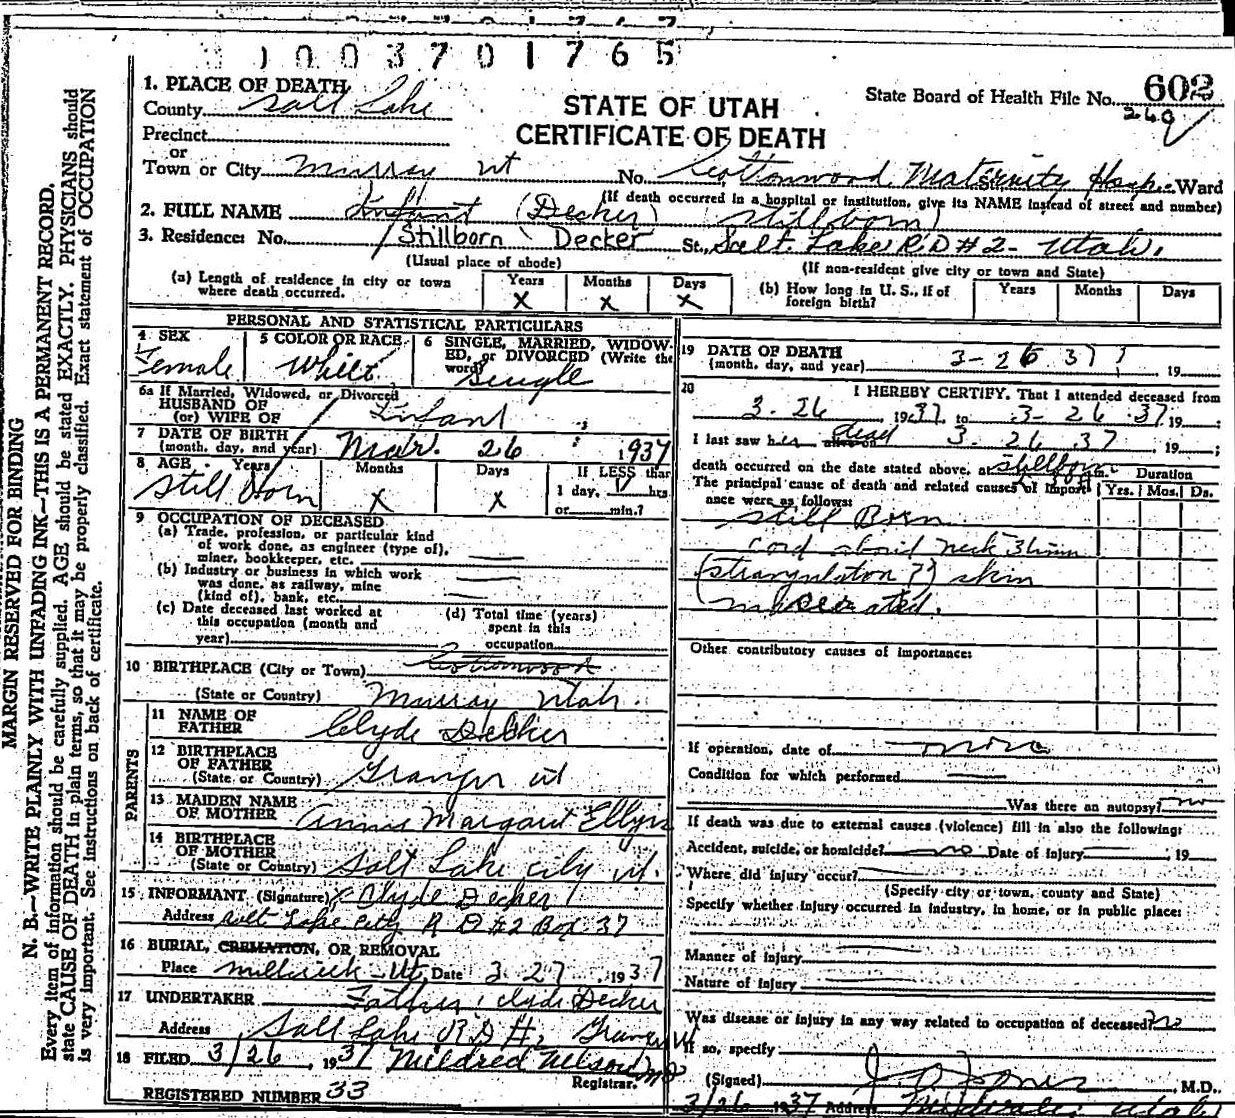 1003701765
State Board of Health File No. 602
269
STATE OF UTAH
CERTIFICATE OF DEATH
MARGIN RESERVED FOR BINDING
N. B.—WRITE PLAINLY WITH UNFADING INK—THIS IS A PERMANENT RECORD.
Every item of information should be carefully supplied. AGE should be stated EXACTLY. PHYSICIANS should
state CAUSE OF DEATH in plain terms, so that it may be properly classified. Exact statement of OCCUPATION
is very important. See instructions on back of certificate.
1. PLACE OF DEATH
County Salt Lake
Precinct
or
Town or City Murray Ut No. Cottonwood Maternity Hosp. Ward
(If death occurred in a hospital or institution, give its NAME instead of street and number)
2. FULL NAME Infant (Decker) (Stillborn)
3. Residence: No. Stillborn Decker St., Salt Lake R.D #2 - Utah.
(Usual place of abode) (If non-resident give city or town and State)
(a) Length of residence in city or town where death occurred. Years X Months X Days X
(b) How long in U. S., if of foreign birth? Years Months Days
PERSONAL AND STATISTICAL PARTICULARS
4 SEX Female
5 COLOR OR RACE White
6 SINGLE, MARRIED, WIDOWED, or DIVORCED (Write the word) Single
6a If Married, Widowed, or Divorced
HUSBAND OF
(or) WIFE OF Infant
7 DATE OF BIRTH
(month, day, and year) Mar. 26 1937
8 AGE Years Months Days If LESS than
Still Born X X 1 day, hrs.
or min.?
9 OCCUPATION OF DECEASED
(a) Trade, profession, or particular kind
of work done, as engineer (type of),
miner, bookkeeper, etc.
(b) Industry or business in which work
was done, as railway, mine
(kind of), bank, etc.
(c) Date deceased last worked at
this occupation (month and
year)
(d) Total time (years)
spent in this
occupation
10 BIRTHPLACE (City or Town) Cottonwood
(State or Country) Murray Utah.
PARENTS
11 NAME OF
FATHER Clyde Decker
12 BIRTHPLACE
OF FATHER
(State or Country) Granger ut
13 MAIDEN NAME
OF MOTHER Annie Margaret
14 BIRTHPLACE
OF MOTHER
(State or Country) Salt Lake City ut.
15 INFORMANT (Signature) X Clyde Decker
Address Salt Lake City R D #2 Box 37
16 BURIAL, CREMATION, OR REMOVAL
Place Millcreek - Ut. Date 3 27 1937
17 UNDERTAKER Father, Clyde Decker
Address Salt Lake R D #2 Granger Ut
18 FILED 3/26, 1937 Mildred Nelson
Registrar.
REGISTERED NUMBER 33
19 DATE OF DEATH
(month, day, and year) 3-26 37, 19
20 I HEREBY CERTIFY, That I attended deceased from
3-26, 1937, to 3-26-37, 19;
I last saw her alive on dead 3-26 37, 19;
death occurred on the date stated above, at stillborn m. Duration
The principal cause of death and related causes of importance were as follows: Yrs. Mos. Ds.
Still Born
cord about neck
(strangulation ?) skin
macerated.
Other contributory causes of importance:
If operation, date of none
Condition for which performed
Was there an autopsy? no
If death was due to external causes (violence) fill in also the following:
Accident, suicide, or homicide? no Date of injury, 19
Where did injury occur?
(Specify city or town, county and State)
Specify whether injury occurred in industry, in home, or in public place:
Manner of injury
Nature of injury
Was disease or injury in any way related to occupation of deceased? no
If so, specify
(Signed) Jones, M.D.
3/26 1937 Address Midvale, Utah